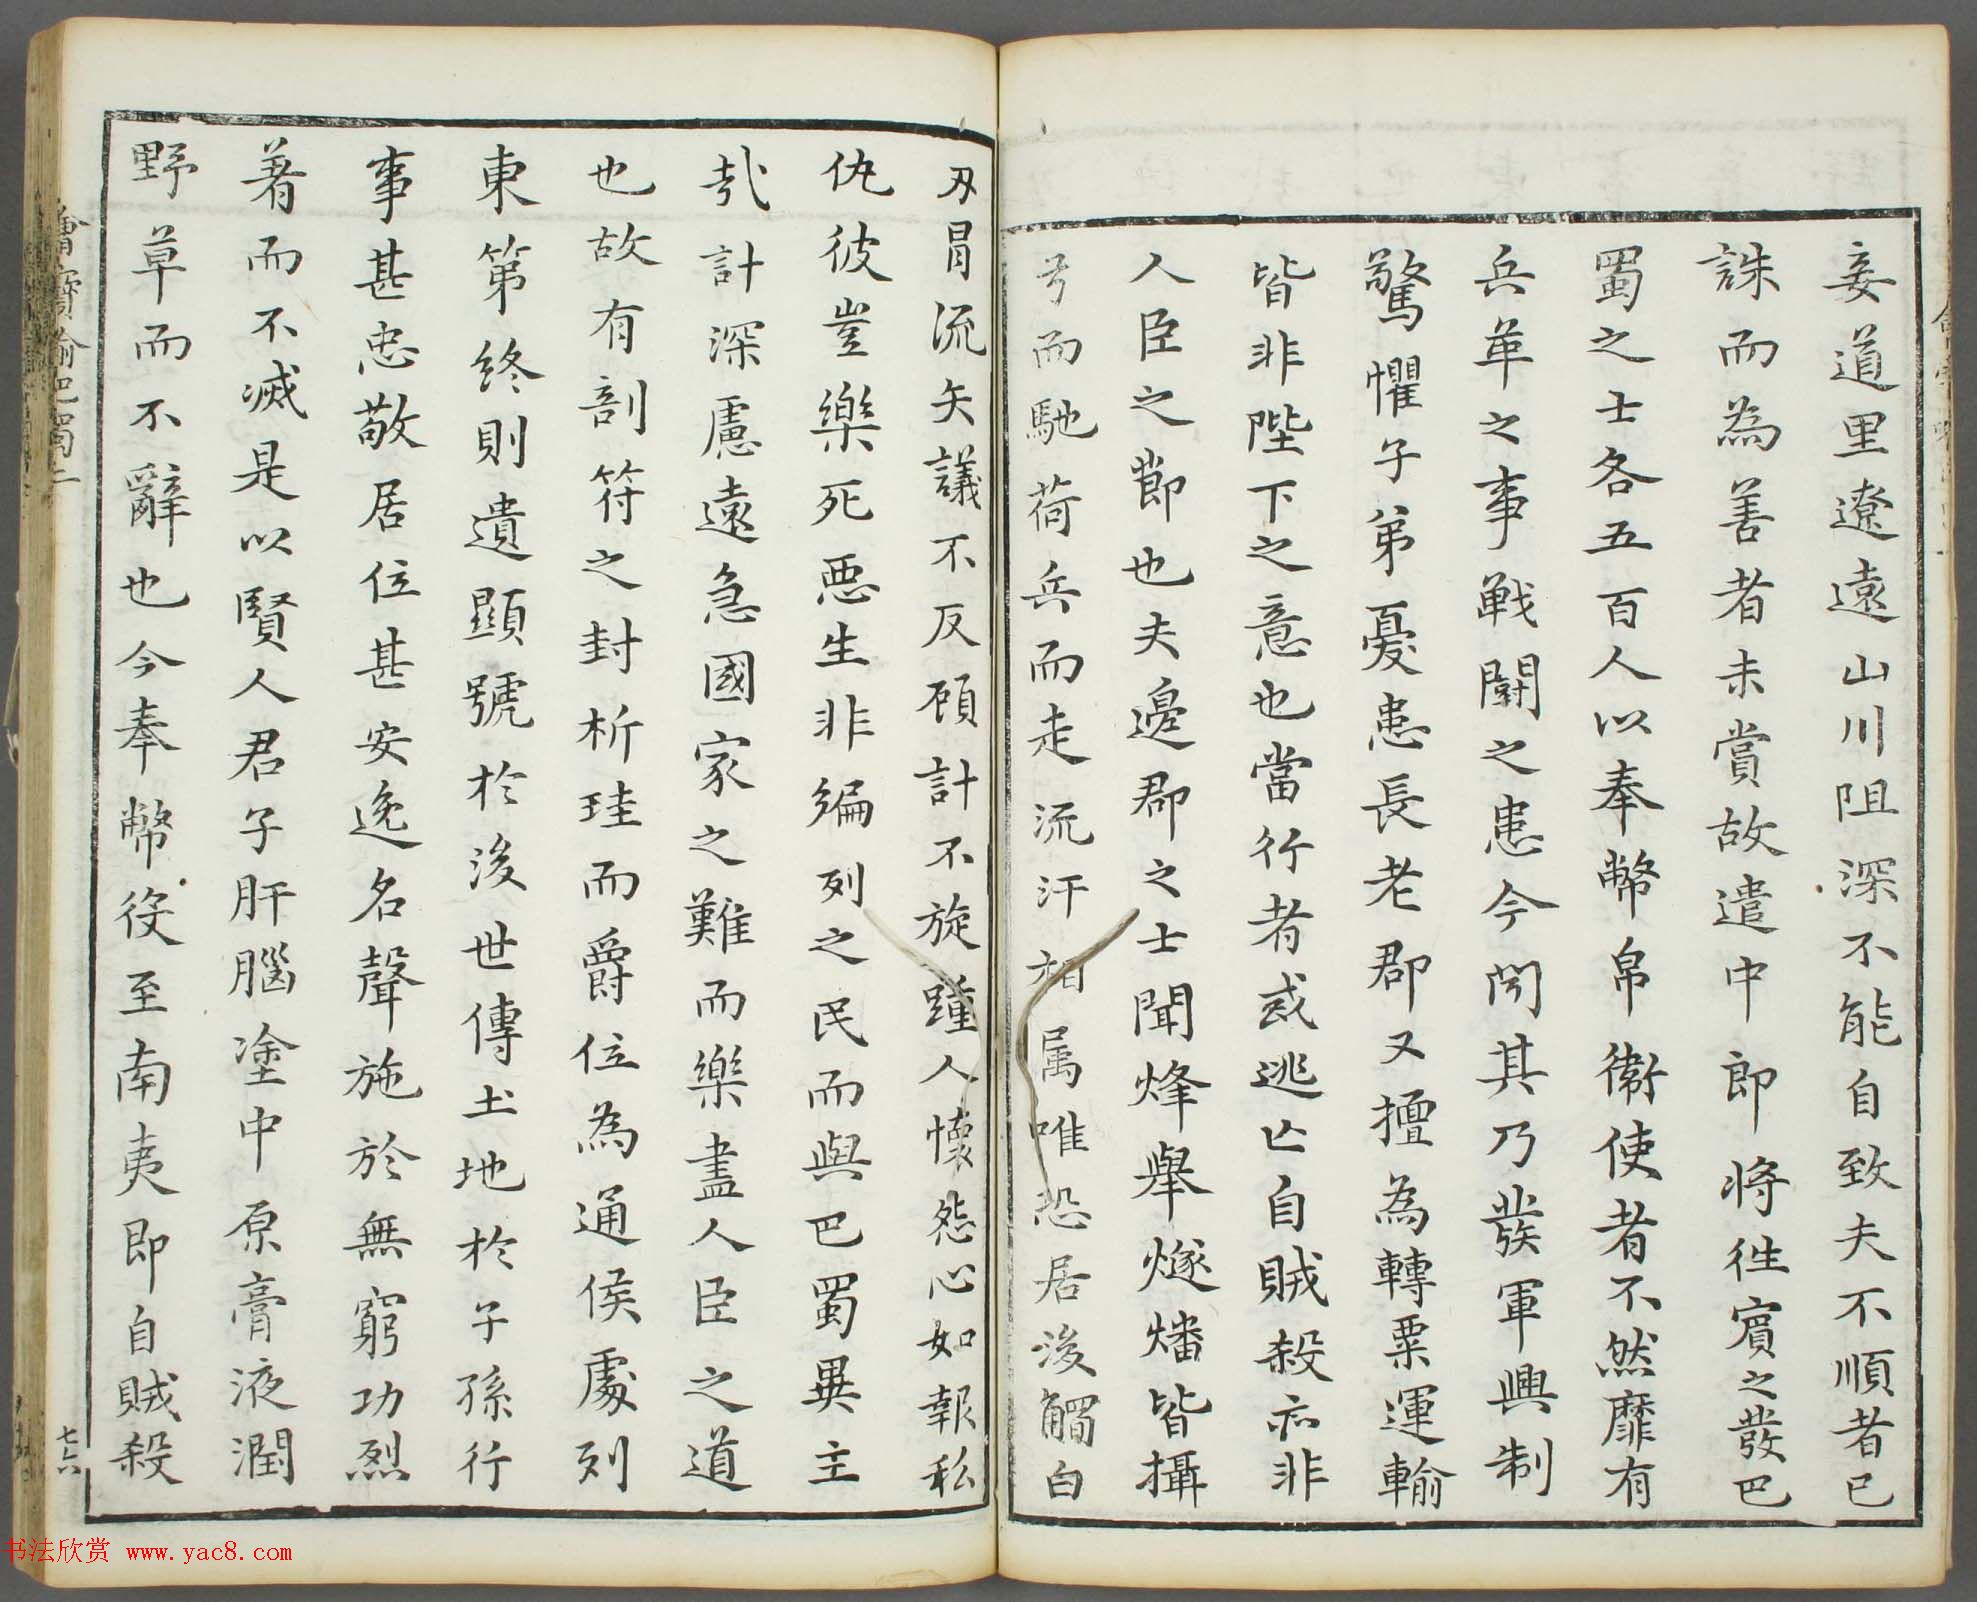 妾道里遼遠山川阻深不能自致夫不順者已
誅而為善者未賞故遣中郎將徃賓之發巴
蜀之士各五百人以奉幣帛衛使者不然靡有
兵革之事戰鬬之患今聞其乃發軍興制
驚懼子弟憂患長老郡又擅為轉粟運輸
皆非陛下之意也當行者或逃亡自賊殺亦非
人臣之節也夫邊郡之士聞烽舉燧燔皆攝
弓而馳荷兵而走流汗相属唯恐居後觸白
刃冒流矢議不反顧計不旋踵人懷怨心如報私
仇彼豈樂死惡生非編列之民而與巴蜀異主
哉計深慮遠急國家之難而樂盡人臣之道
也故有剖符之封析珪而爵位為通侯處列
東第終則遺顯號於後世傳土地於子孫行
事甚忠敬居位甚安逸名聲施於無窮功烈
著而不滅是以賢人君子肝腦塗中原膏液潤
野草而不辭也今奉幣役至南夷即自賊殺
喻巴蜀二
七六
书法欣赏 www.yac8.com